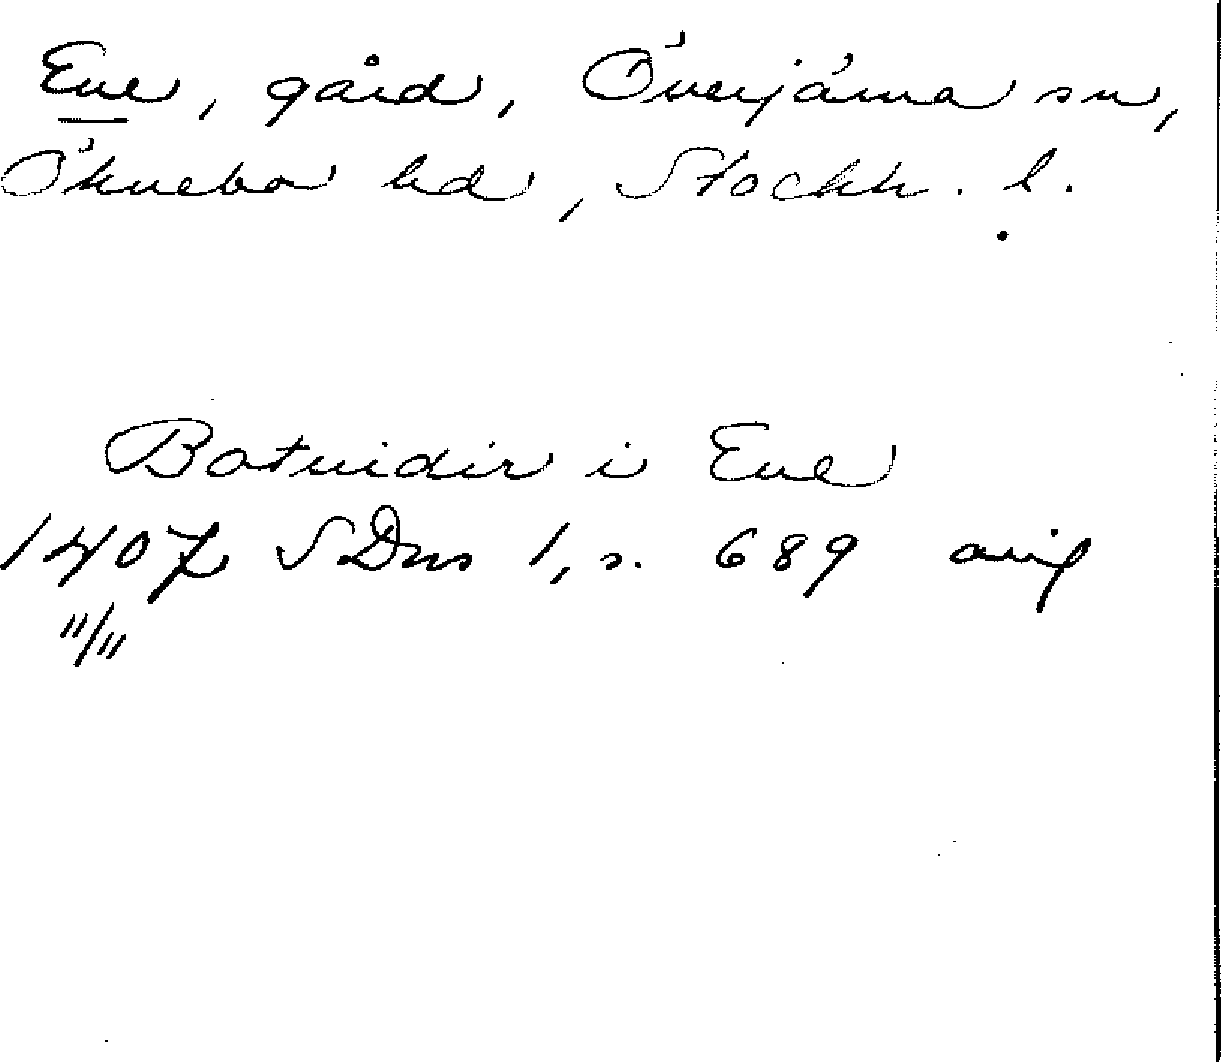 Ene, gård, Överjärna sn,
Öknebo hd, Stockh. l.
Botuidir i Ene
1407 SDns 1, s. 689 orig
11/11